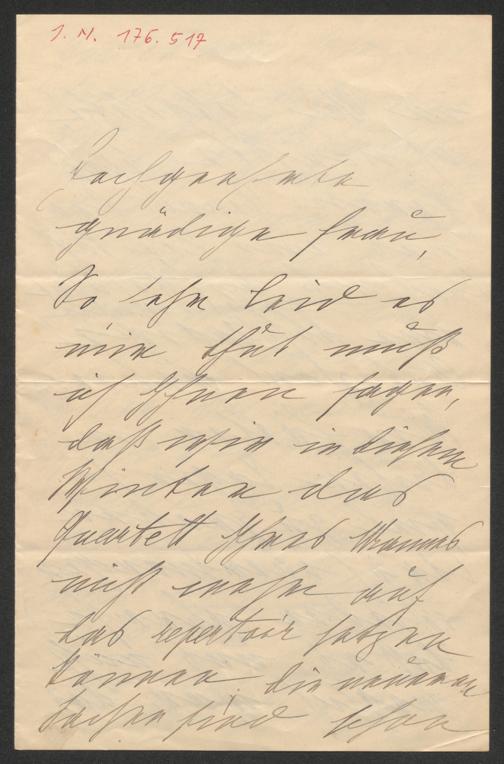 I. N. 176.517
Hochgeehrte
gnädige Frau,
So sehr leid es
mir thut muß
ich Ihnen sagen,
daß wir in diesem
Winter das
Quartett Ihres Mannes
nicht mehr auf
das repertoir setzen
können. Die neueren
Sachen sind schon